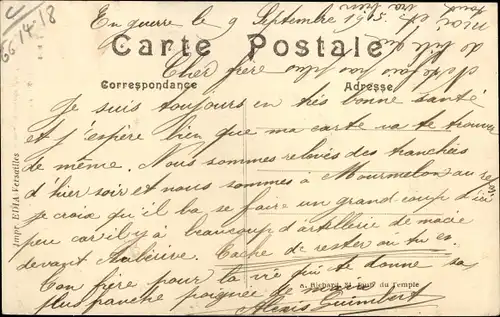 66/4/18
En guerre le 9 Septembre 1915.
Carte Postale
Cher frère
Correspondance
Adresse
Je suis toujours en très bonne santé
et j'espère bien que ma carte va te trouver
de même. Nous sommes relevés des tranchées
d'hier soir et nous sommes à Mourmelon au repos
je crois qu'il va se faire un grand coup d'ici
peu car il y a beaucoup d'artillerie de
devant Aubérive. Tache de rester où tu es.
Ton frère pour la vie qui te donne sa
plus franche poignée de main
Alexis Guimbert
A. Richard, du Temple
Impr. EDIA Versailles
moi et
va bien
tout